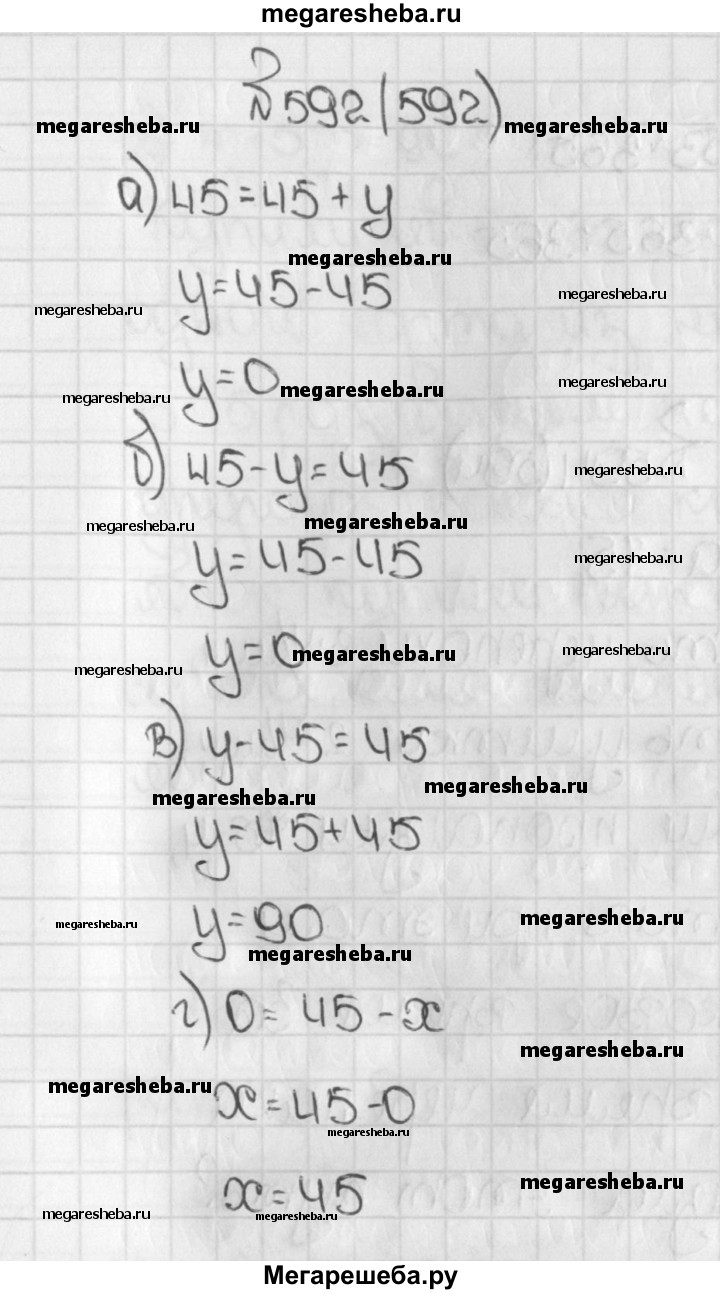 megaresheba.ru
№ 592 (592)
megaresheba.ru megaresheba.ru
а) 45 = 45 + y
megaresheba.ru
y = 45 - 45
megaresheba.ru megaresheba.ru
y = 0
megaresheba.ru megaresheba.ru megaresheba.ru
б) 45 - y = 45
megaresheba.ru
megaresheba.ru megaresheba.ru
y = 45 - 45
megaresheba.ru
y = 0
megaresheba.ru megaresheba.ru megaresheba.ru
в) y - 45 = 45
megaresheba.ru megaresheba.ru
y = 45 + 45
y = 90
megaresheba.ru megaresheba.ru
megaresheba.ru
г) 0 = 45 - x
megaresheba.ru
megaresheba.ru
x = 45 - 0
megaresheba.ru
x = 45
megaresheba.ru
megaresheba.ru megaresheba.ru
Мегарешеба.ру